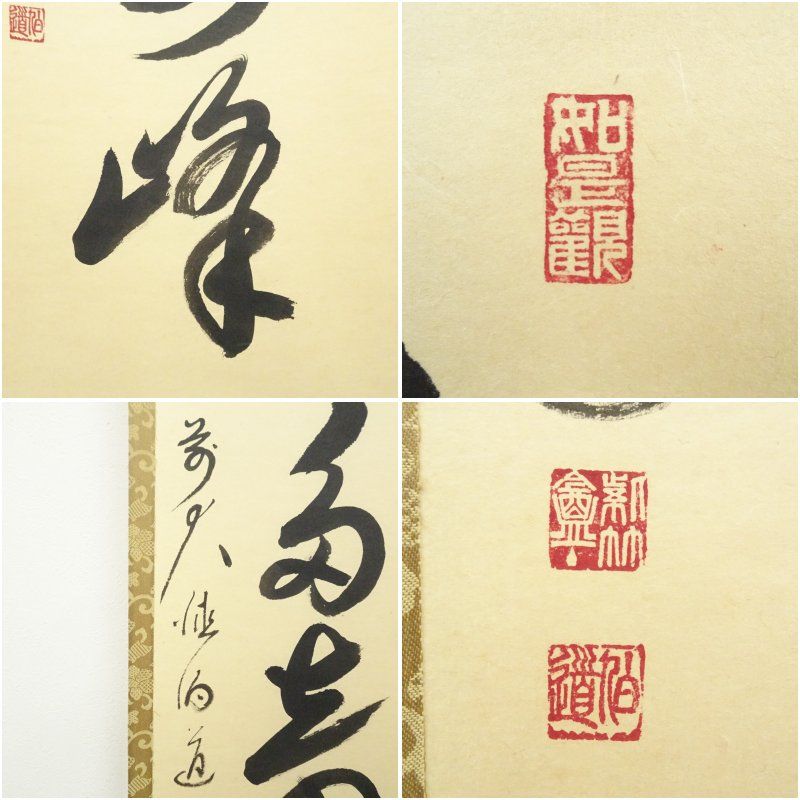 伯道
峰
如是觀
多奇
前大徳伯道
盦
伯道